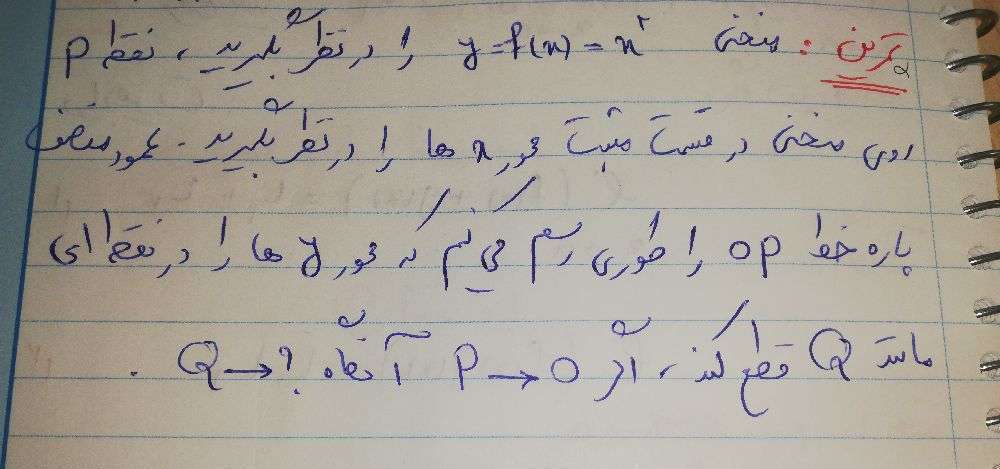 تمرین : منحنی y = f(x) = x² را در نظر بگیرید ، نقطه P
روی منحنی در قسمت مثبت محور x ها را در نظر بگیرید . عمود منصف
پاره خط OP را طوری رسم می‌کنیم که محور y ها را در نقطه ای
مانند Q قطع کند ، اگر P → O آنگاه Q → ? .